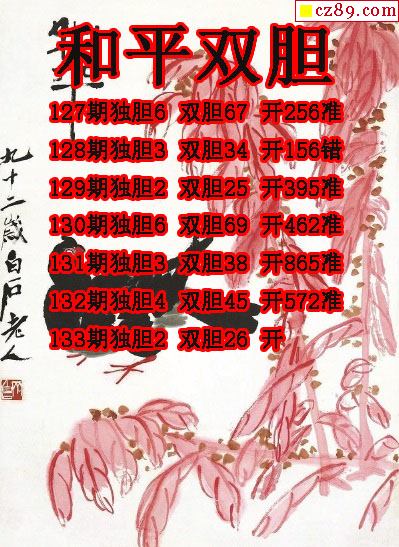 cz89.com
和平双胆
127期独胆6 双胆67 开256准
128期独胆3 双胆34 开156错
129期独胆2 双胆25 开395准
130期独胆6 双胆69 开462准
131期独胆3 双胆38 开865准
132期独胆4 双胆45 开572准
133期独胆2 双胆26 开
九十二岁白石老人